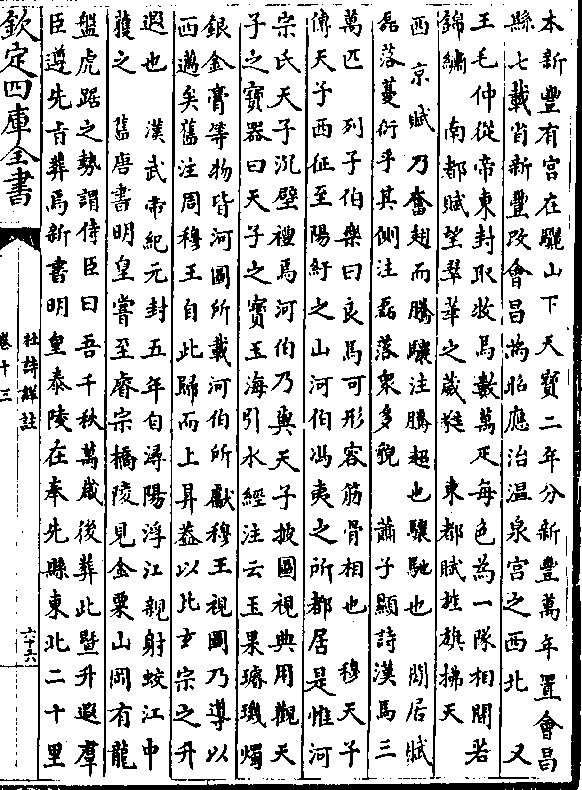 本新豐有宮在驪山下天寶二年分新豐萬年置會昌
縣七載省新豐改會昌為昭應治溫泉宮之西北　又
王毛仲從帝東封取牧馬數萬疋每色為一隊相間若
錦繡　南都賦望翠華之葳蕤　東都賦旌旗拂天
西京賦乃奮翅而騰驤注騰超也驤馳也　閒居賦
磊落蔓衍乎其側注磊落衆多貌　蕭子顯詩漢馬三
萬匹　列子伯樂曰良馬可形容筋骨相也　穆天子
傳天子西征至陽紆之山河伯馮夷之所都居是惟河
宗氏天子沉璧禮焉河伯乃與天子披圖視典用觀天
子之寶器曰天子之寶玉海引水經注云玉果璿璣燭
銀金膏等物皆河圖所載河伯所獻穆王視圖乃導以
西邁矣舊注周穆王自此歸而上昇葢以比玄宗之升
遐也　漢武帝紀元封五年自潯陽浮江親射蛟江中
獲之　舊唐書明皇嘗至睿宗橋陵見金粟山岡有龍
盤虎踞之勢謂侍臣曰吾千秋萬歲後葬此暨升遐羣
臣遵先旨葬焉新書明皇泰陵在奉先縣東北二十里
欽定四庫全書
杜詩詳註
卷十三
六十六